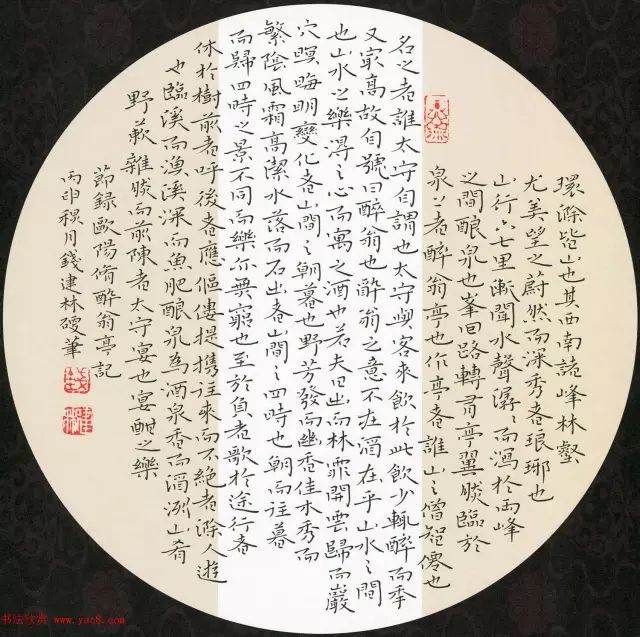 環滁皆山也其西南諸峰林壑
尤美望之蔚然而深秀者琅琊也
山行六七里漸聞水聲潺〻而瀉於兩峰
之間釀泉也峯回路轉有亭翼然臨於
泉上者醉翁亭也作亭者誰山之僧智僊也
名之者誰太守自謂也太守與客來飲於此飲少輒醉而年
又最高故自號曰醉翁也醉翁之意不在酒在乎山水之間
也山水之樂得之心而寓之酒也若夫日出而林霏開雲歸而巖
穴暝晦明變化者山間之朝暮也野芳發而幽香佳木秀而
繁陰風霜高潔水落而石出者山間之四時也朝而往暮
而歸四時之景不同而樂亦無窮也至於負者歌於途行者
休於樹前者呼後者應傴僂提携往來而不絕者滁人遊
也臨溪而漁溪深而魚肥釀泉為酒泉香而酒洌山肴
野蔌雜然而前陳者太守宴也宴酣之樂
節録歐陽脩醉翁亭記
丙申穐月錢建林硬筆
书法欣赏 www.yac8.com